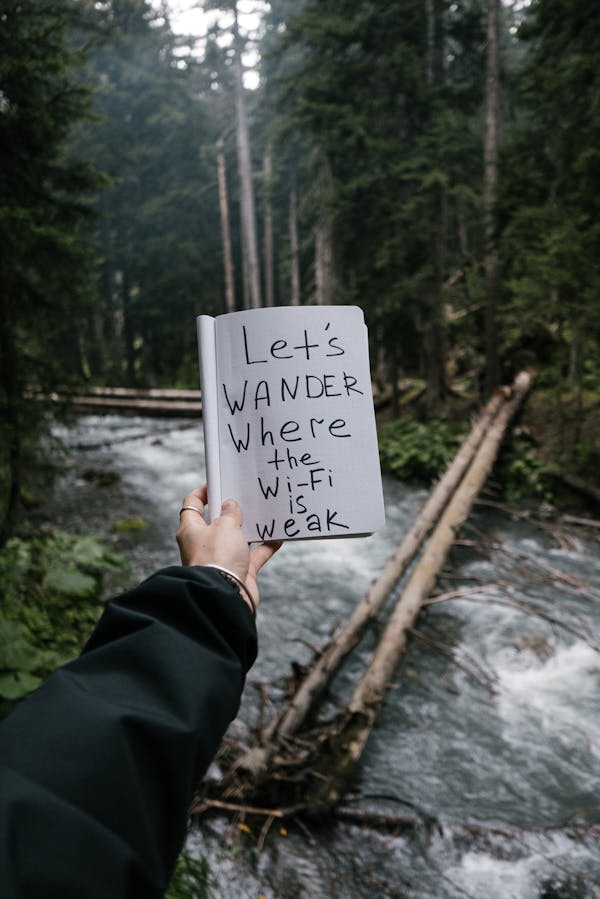 Let's
WANDER
Where
the
Wi-Fi
is
weak